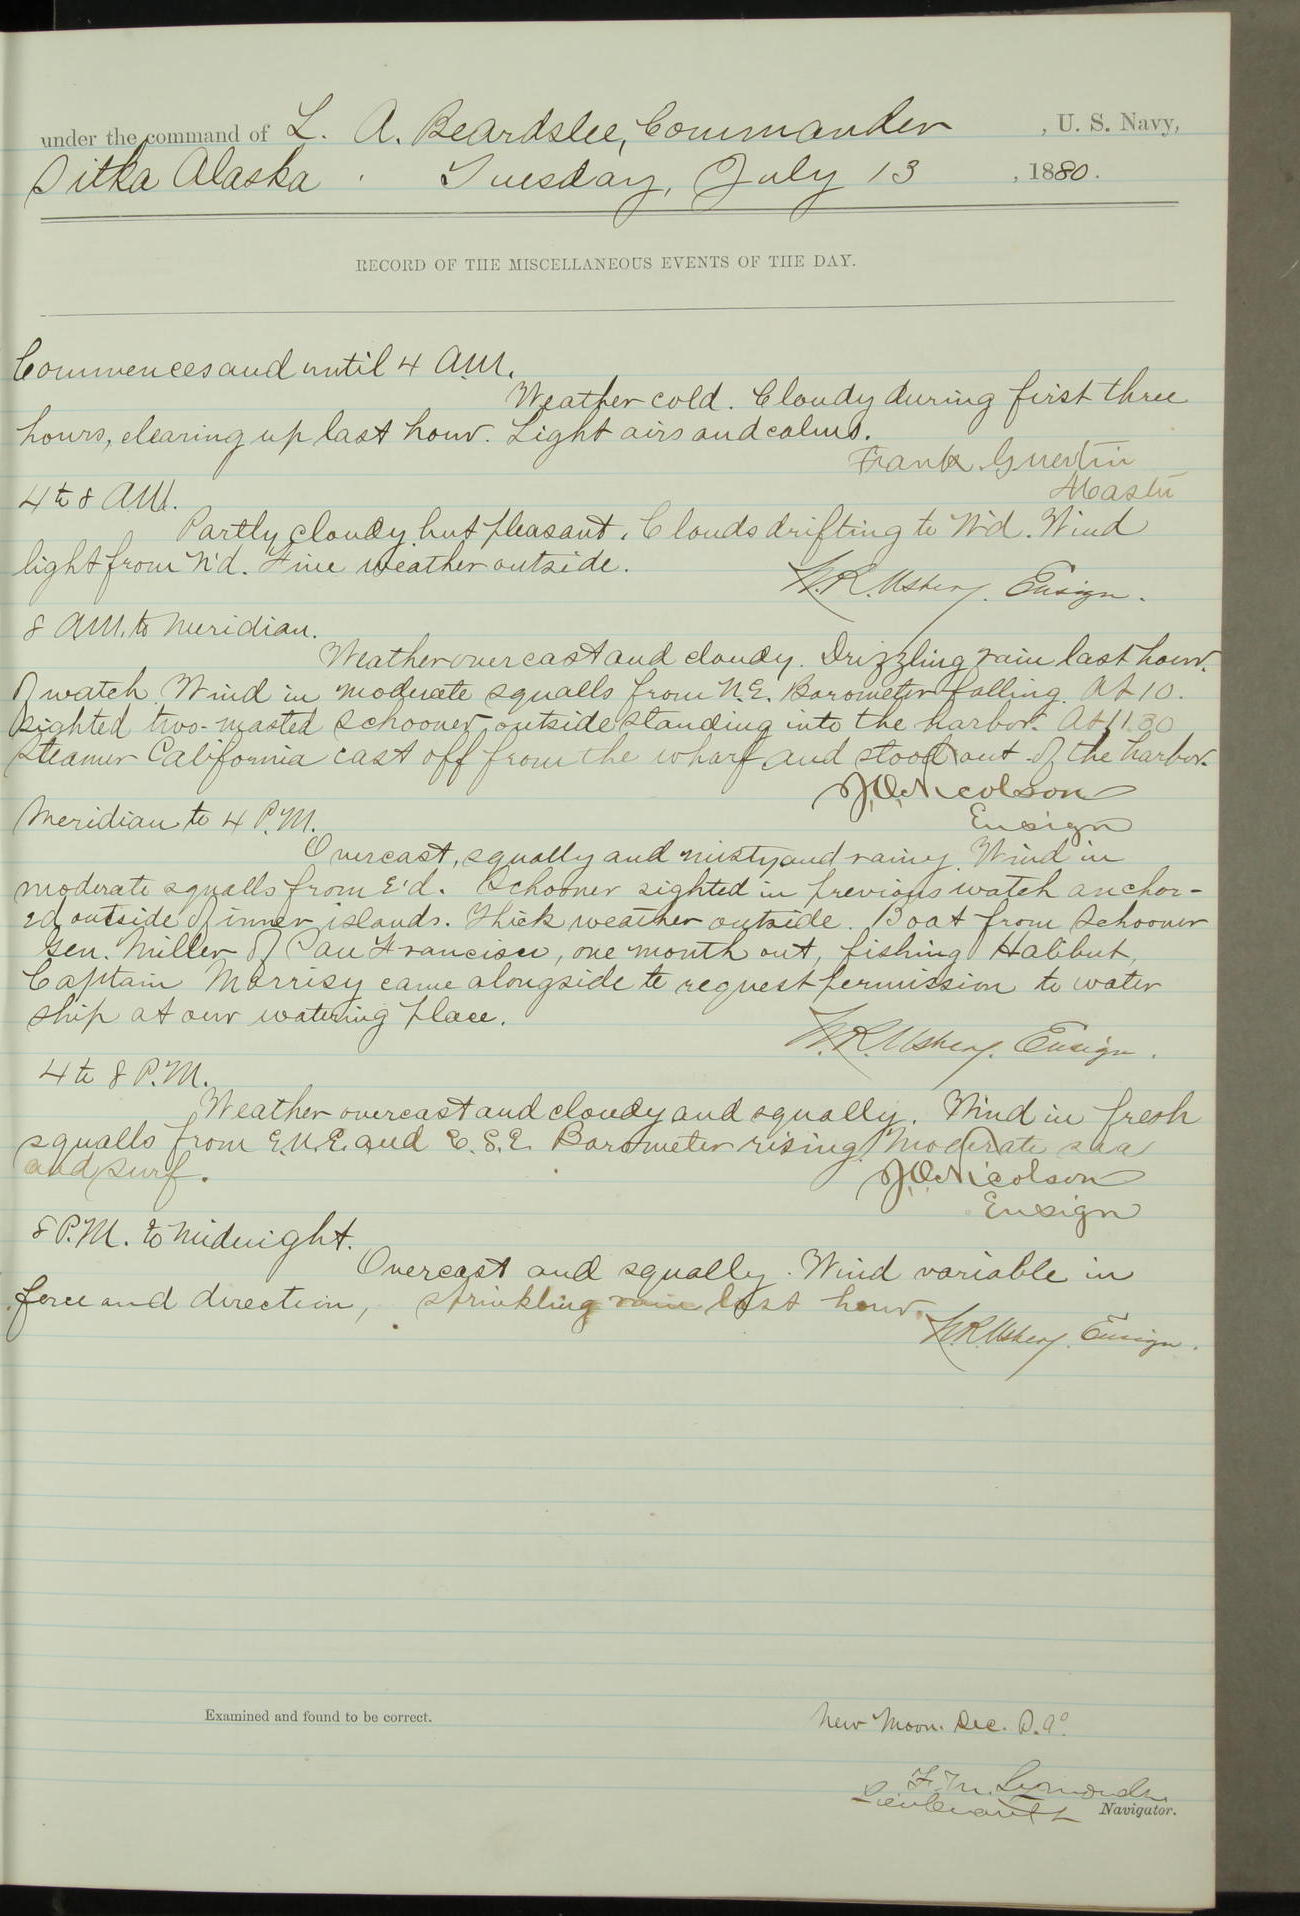 under the command of L. A. Beardslee, Commander , U. S. Navy,
Sitka Alaska . Tuesday, July 13 , 1880.
RECORD OF THE MISCELLANEOUS EVENTS OF THE DAY.
Commences and until 4 A.M.
Weather cold. Cloudy during first three
hours, clearing up last hour. Light airs and calms.
Frank Guertin
Master
4 to 8 A.M.
Partly cloudy but pleasant. Clouds drifting to W'd. Wind
light from N'd. Fine weather outside.
W.R. Usher. Ensign.
8 A.M. to Meridian.
Weather overcast and cloudy. Drizzling rain last hour.
of watch. Wind in moderate squalls from N.E. Barometer falling. At 10.
sighted two-masted schooner outside standing into the harbor. At 11.30
steamer California cast off from the wharf and stood out of the harbor.
J.O. Nicolson
Ensign
Meridian to 4 P.M.
Overcast, squally and misty and rainy. Wind in
moderate squalls from E'd. Schooner sighted in previous watch anchor-
ed outside of inner islands. Thick weather outside. Boat from Schooner
Gen. Miller of San Francisco, one month out, fishing Halibut,
Captain Morrisy came alongside to request permission to water
ship at our watering place.
W.R. Usher. Ensign.
4 to 8 P.M.
Weather overcast and cloudy and squally. Wind in fresh
squalls from E.N.E. and E.S.E. Barometer rising. Moderate sea
and surf.
J.O. Nicolson
Ensign
8 P.M. to Midnight.
Overcast and squally. Wind variable in
force and direction, sprinkling rain last hour.
W.R. Usher. Ensign.
Examined and found to be correct.
New Moon. Dec.
F. M. Symonds
Lieutenant Navigator.